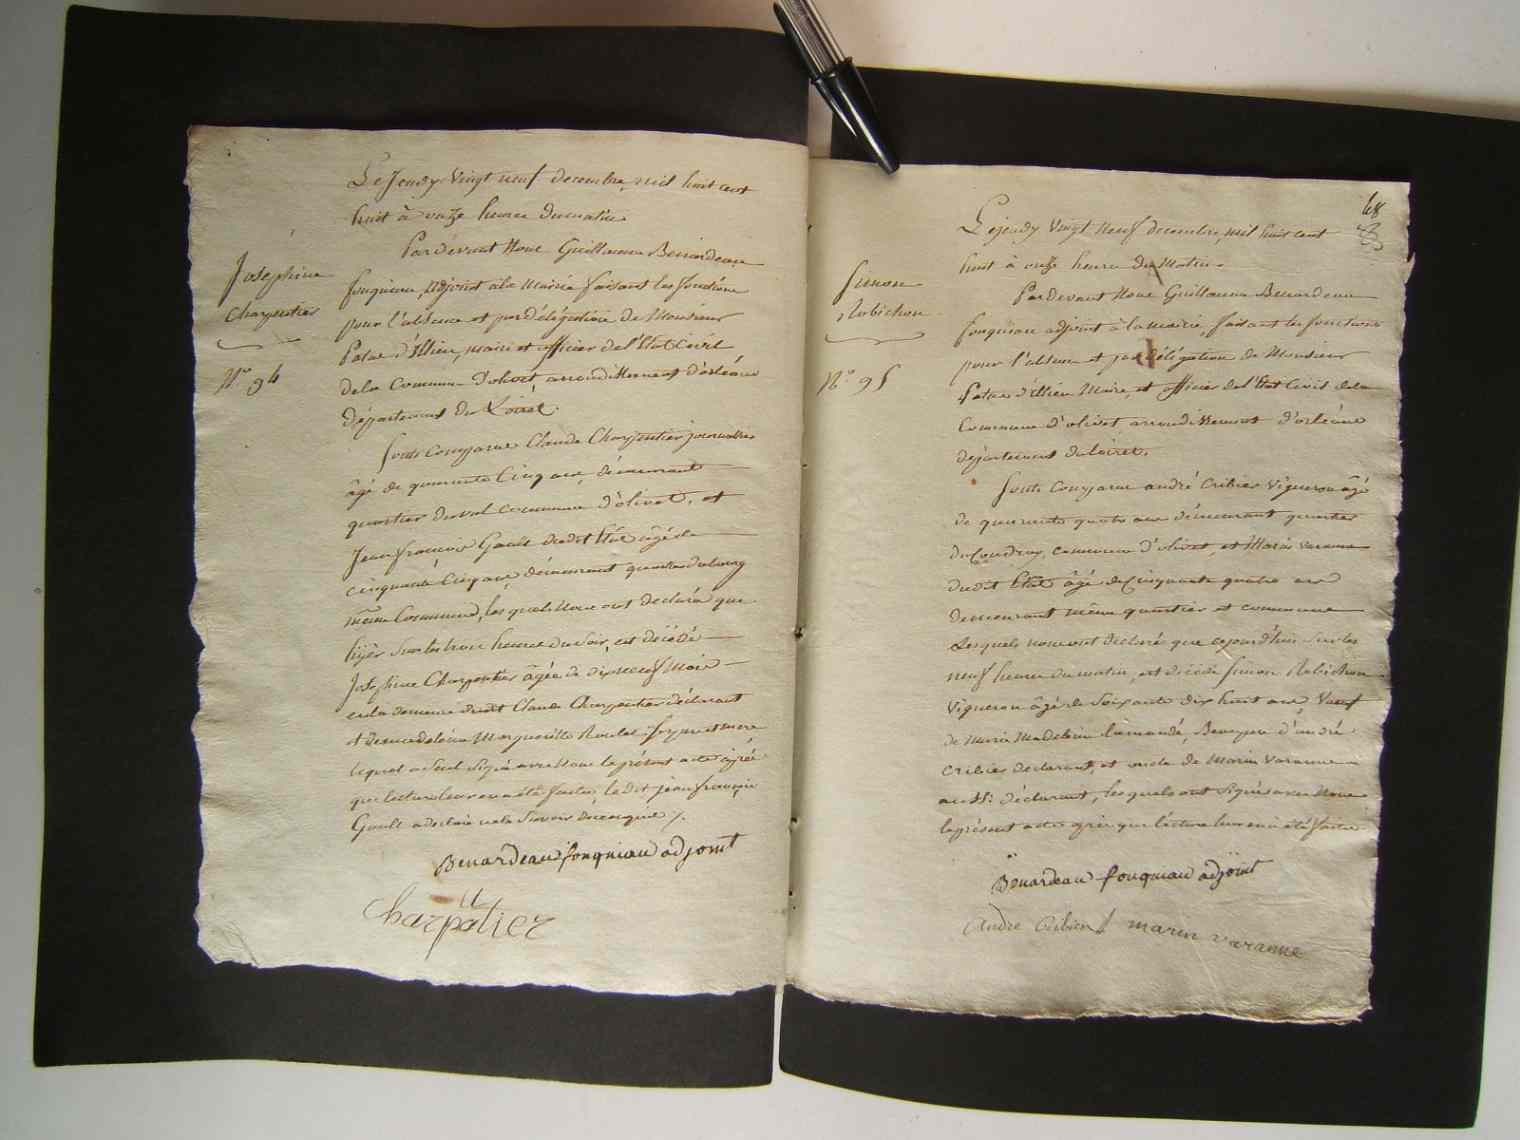 Le Jeudy Vingt neuf decembre, mil huit cent
huit à onze heures du matin
Pardevant Nous Guillaume Benardeau
fouqniau, adjoint à la Mairie faisant les fonctions
pour l'absence et par délégation de Monsieur
Patas d'Illiers, maire et officier de l'Etat Civil
de la Commune d'olivet, arrondissement d'orléans
département du Loiret.
Josephine
Charpentier
N.º 94
Sont Comparus Claude Charpentier journallier
âgé de quarente Cinq ans, demeurant
quartier du val commune d'olivet, et
Jean françois Gault dudit Etat âgé de
cinquante Cinq ans demeurant quartier du bourg
même Commune, les quels Nous ont declaré que
hijer sur les trois heures du soir, est décédé
Josephine Charpentier âgée de dix neuf Mois
en la demeure dudit Claude Charpentier déclarant
et de Madeleine Margueritte son pere et mere
lequel a seul signé avec Nous le présent acte après
que lecture leur en a été faitte, le dit jean françois
Gault a declaré ne le savoir de ce enquis /.
Benardeau fouqniau adjoint
Charpâtier
68
Le jeudy Vingt Neuf decembre, mil huit cent
huit à onze heures du Matin
Pardevant Nous Guillaume Benardeau
fouqniau adjoint à la mairie, faisant les fonctions
pour l'absence et par délégation de Monsieur
Patas d'Illiers Maire, et officier de l'Etat Civil de la
Commune d'olivet arrondissement d'orléans
département du Loiret.
Simon
Robichon
N.º 95
Sont Comparus andré Cribier Vigneron âgé
de quarente quatre ans demeurant quartier
du Coudray, commune d'olivet, et Marin Varanne
dudit Etat âgé de Cinquante quatre ans
demeurant même quartier et commune
Lesquels nous ont declaré que cejourd'hui sur les
neuf heures du matin, est décédé Simon Robichon
Vigneron âgé de Soixante dix huit ans Veuf
de Marie Madeleine, Beaupere d'andré
Cribier déclarant, et oncle de Marin Varanne
aussi déclarant, les quels ont signés avec Nous
le présent acte après que lecture leur en a été faitte
Benardeau fouqniau adjoint
Andre Cribier marin varanne